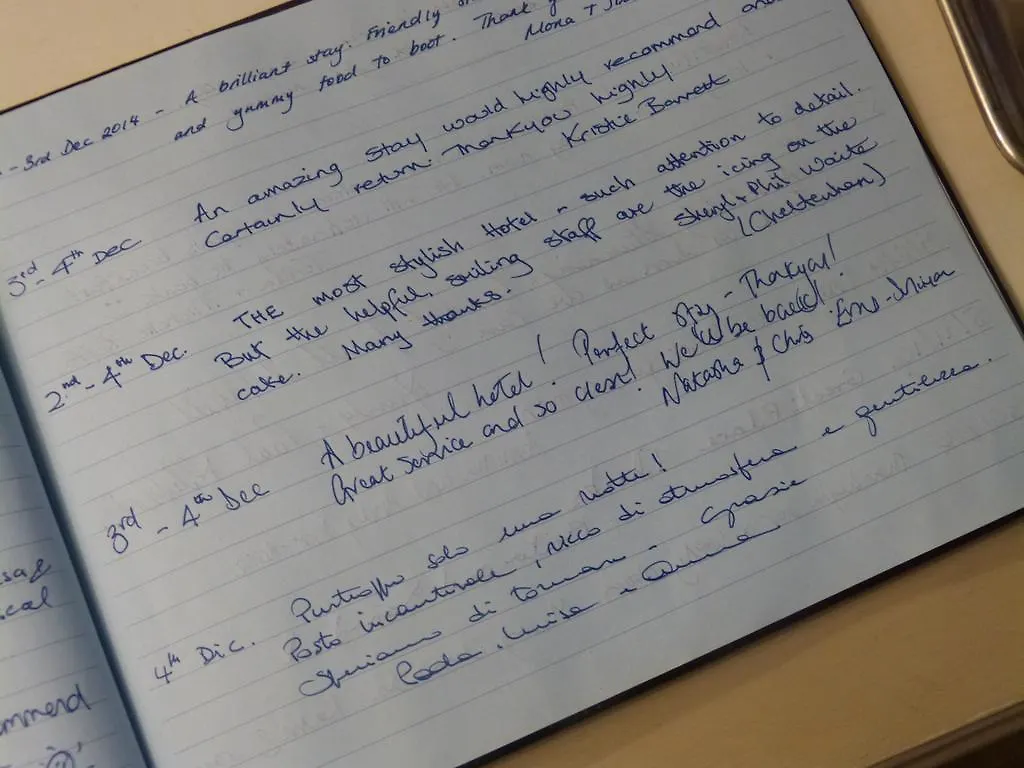 -3rd Dec 2014 - A brilliant stay. Friendly
and yummy food to boot. Thank
Mona +
3rd - 4th Dec An amazing stay would highly recommend and
Certainly return. Thankyou highly
Kristie Barrett
2nd - 4th Dec. THE most stylish Hotel - such attention to detail.
But the helpful, smiling staff are the icing on the
cake. Many thanks. Sheryl + Phil Waite
(Cheltenham)
3rd - 4th Dec A beautiful hotel! Perfect stay - Thankyou!
Great service and so clean! We'll be back!
Natasha & Chris
4th Dic. Purtroppo solo una notte!
Posto incantevole, ricco di atmosfera e gentilezza.
Speriamo di tornare - Grazie
Luisa e
ommend